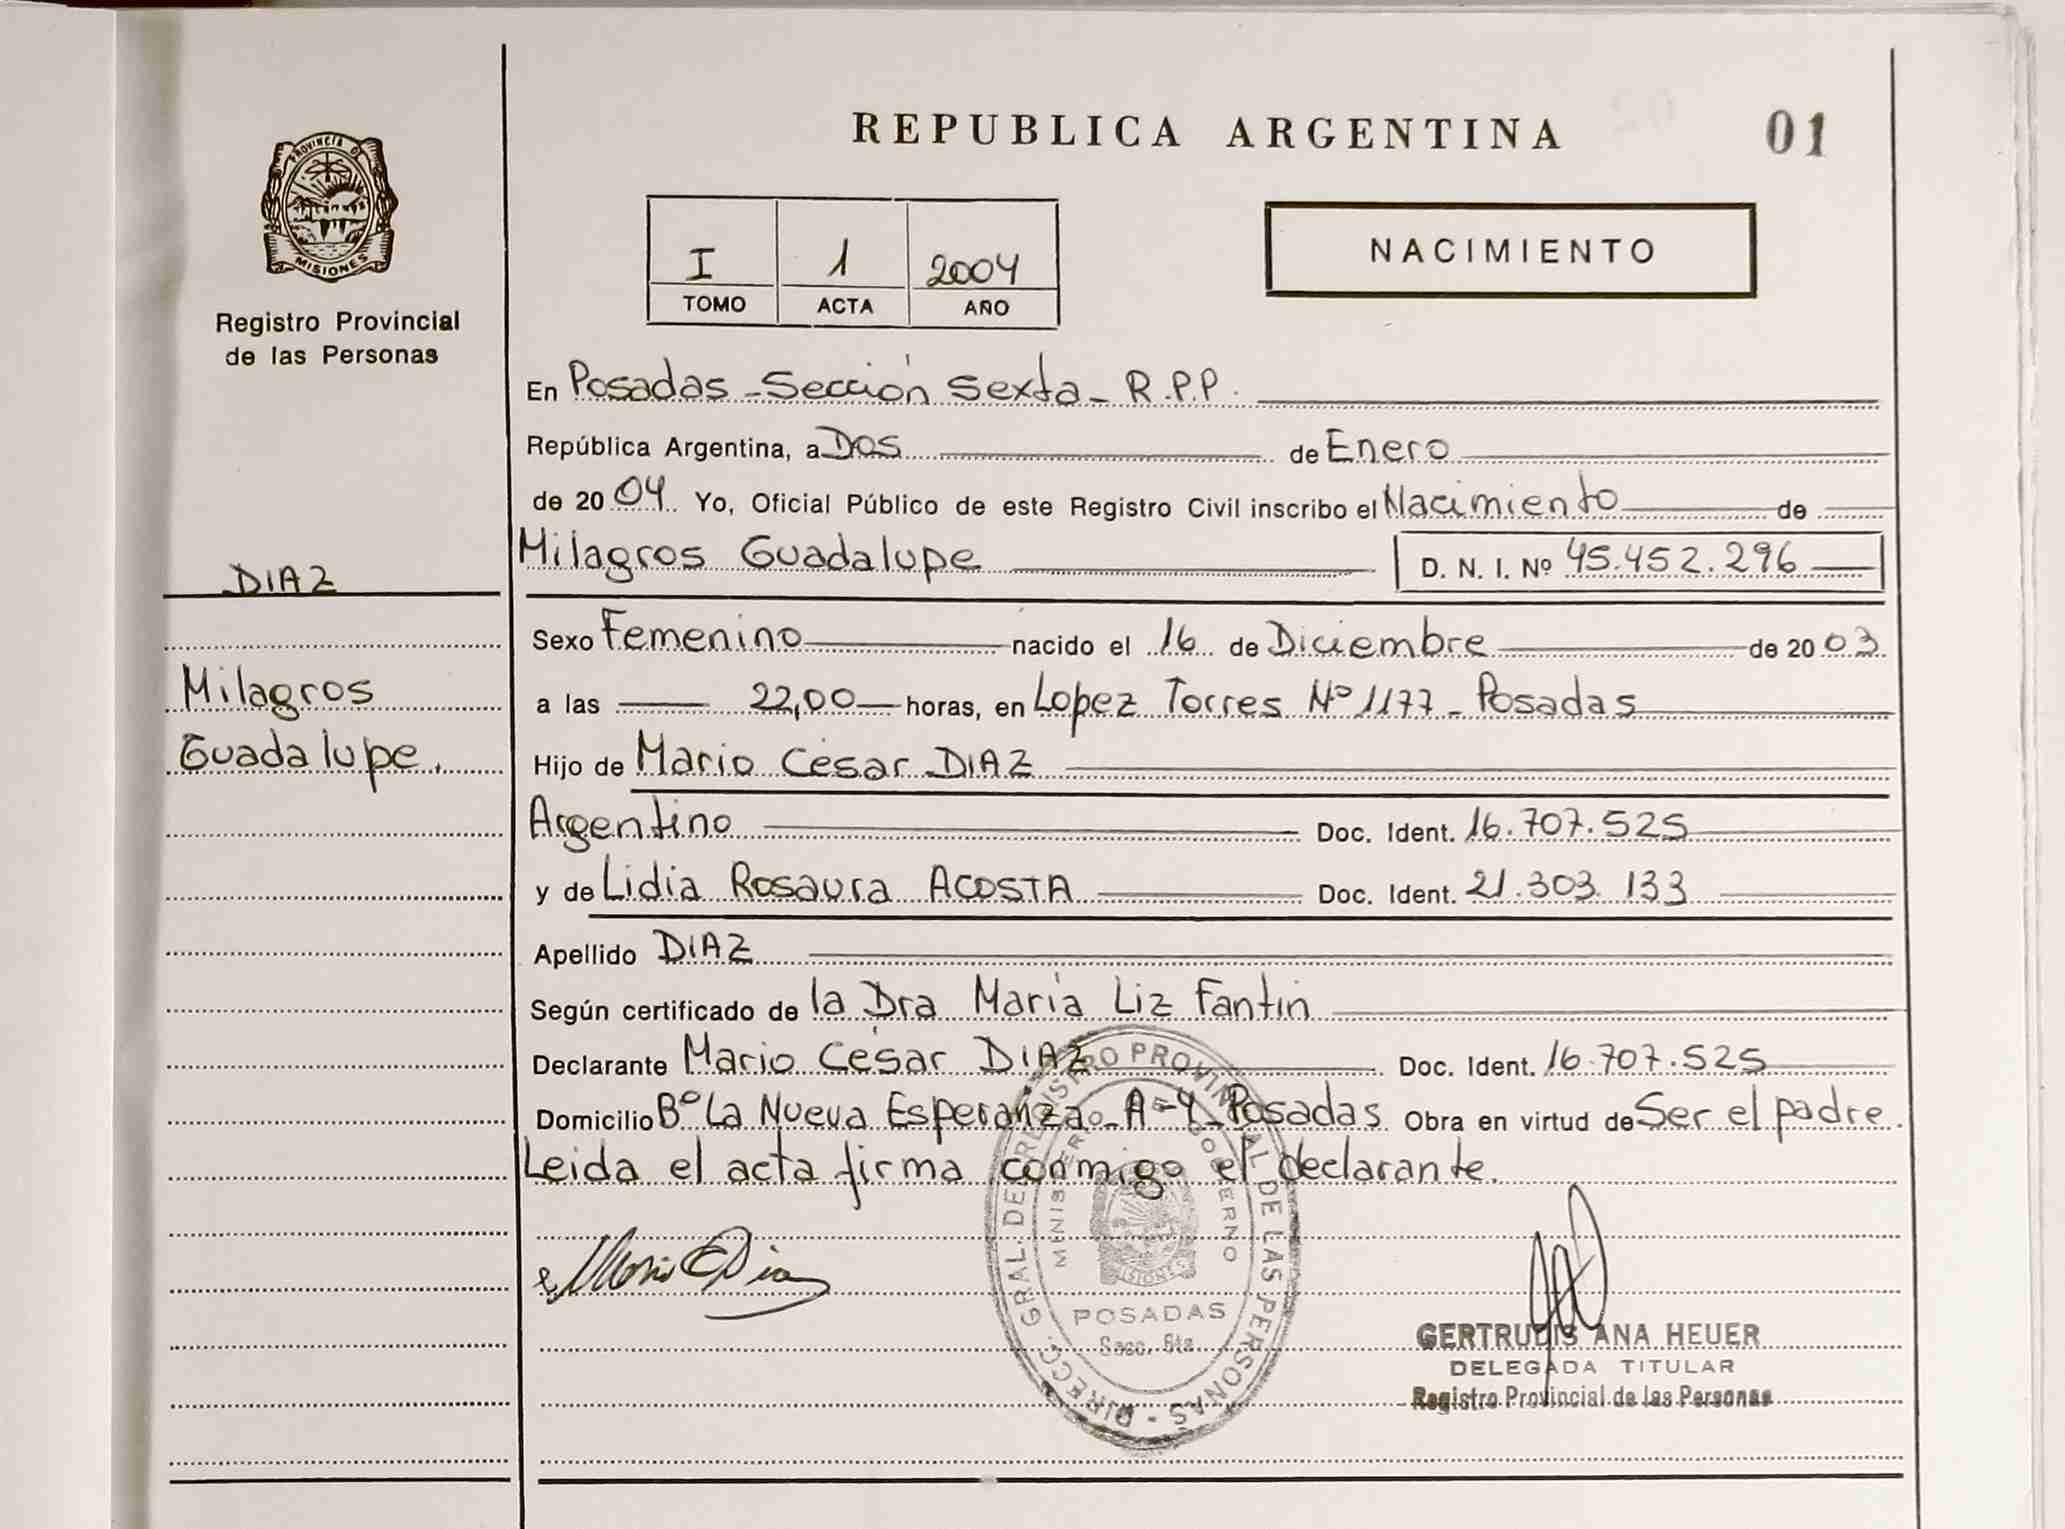 REPUBLICA ARGENTINA
01
PROVINCIA DE
MISIONES
Registro Provincial
de las Personas
I 1 2004
TOMO ACTA AÑO
NACIMIENTO
En Posadas - Sección Sexta - R.P.P.
República Argentina, a Dos de Enero
de 2004. Yo, Oficial Público de este Registro Civil inscribo el Nacimiento de
Milagros Guadalupe D. N. I. Nº 45.452.296
DIAZ
Milagros
Guadalupe.
Sexo Femenino nacido el 16 de Diciembre de 2003
a las 22,00 horas, en Lopez Torres Nº 1177 - Posadas
Hijo de Mario César DIAZ
Argentino Doc. Ident. 16.707.525
y de Lidia Rosaura ACOSTA Doc. Ident. 21.303.133
Apellido DIAZ
Según certificado de la Dra María Liz Fantin
Declarante Mario César DIAZ Doc. Ident. 16.707.525
Domicilio Bº La Nueva Esperanza - A-4 - Posadas Obra en virtud de Ser el padre.
Leida el acta firma conmigo el declarante.
DIRECC. GRAL. DE REGISTRO PROVINCIAL DE LAS PERSONAS -
MINISTERIO DE GOBIERNO
MISIONES
POSADAS
Secc. 6ta.
Mario C Diaz
GERTRUDIS ANA HEUER
DELEGADA TITULAR
Registro Provincial de las Personas